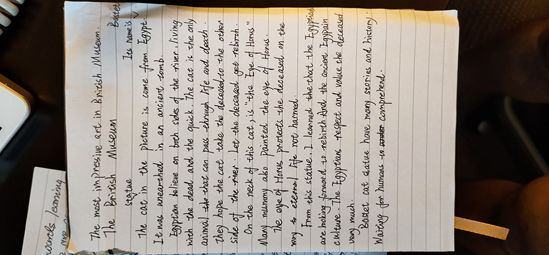 The most impressive art in British Museum.
The British Museum Bastet
statue Its name is
The cat in the picture is come from Egypt
It was unearthed in an ancient tomb.
Egyptian believe on both sides of the river, living
with the dead and the quick. The cat is the only
animal the that can pass through life and death.
they hope the cat take the deceased to the other
side of the river. Let the deceased get rebirth.
On the neck of this cat is "the Eye of Horus"
Many mummy also painted the eye of Horus.
The eye of Horus protects the deceased on the
way to eternal life not harmed.
From this statue I learned that the Egyptian
are looking forward to rebirth and the ancient Egyptian
culture The Egyptians respect and value the deceased
very much.
Bastet cat statue have many stories and history
Waiting for humans to comprehend.
towards learning